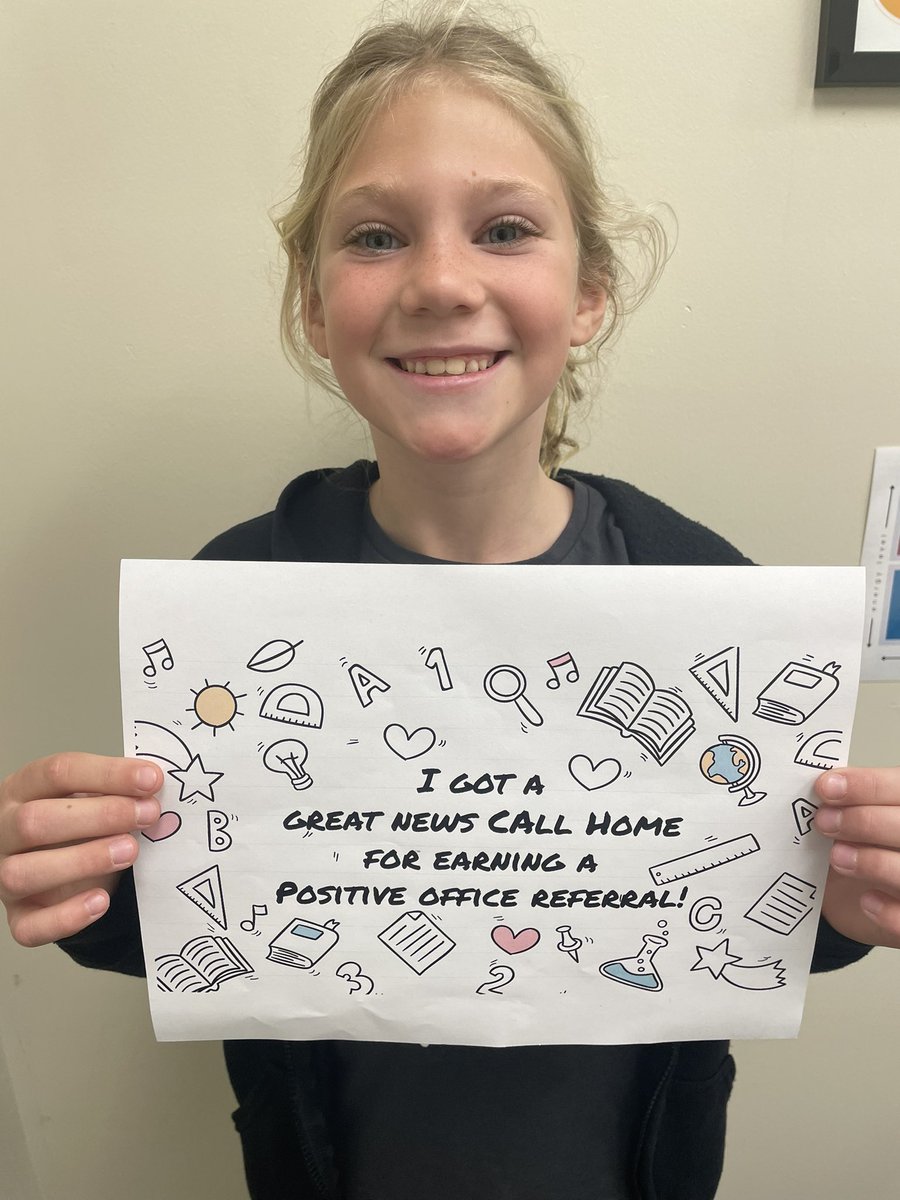 I GOT A
GREAT NEWS CALL HOME
FOR EARNING A
POSITIVE OFFICE REFERRAL!
A
1
B
A
C
3
2